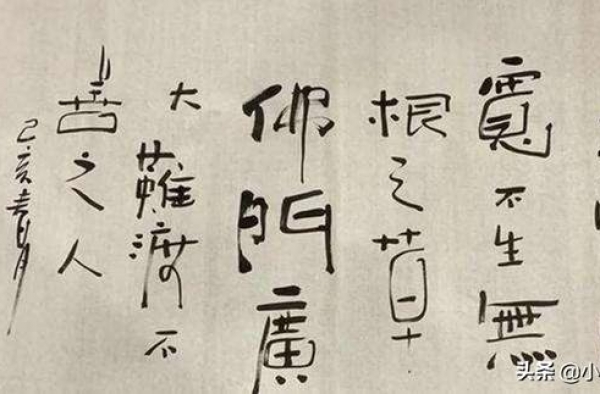 寬不生無
根之草
佛門廣
大難渡不
善之人
己亥
头条 @小